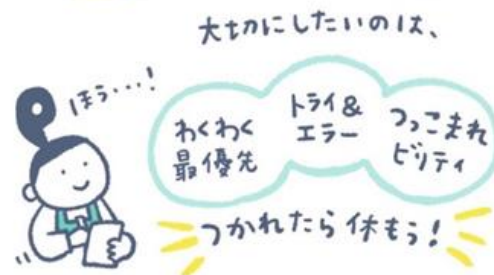 大切にしたいのは、
ほう・・・!
わくわく
最優先
トライ&
エラー
つっこまれ
ビリティ
つかれたら休もう!